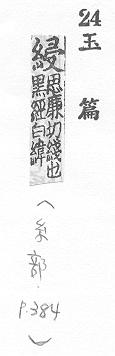 24 玉篇
綅 思廉切綫也
黑經白緯
(糸部. P.384)